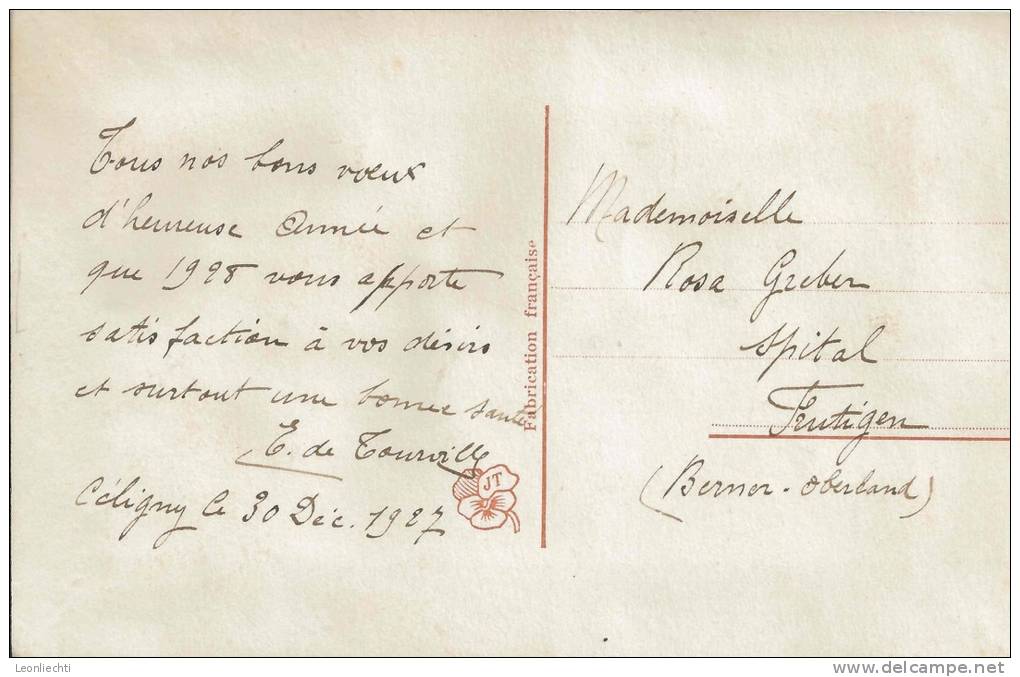 Tous nos bons voeux
d'heureuse année et
que 1928 vous apporte
satisfaction à vos désirs
et surtout une bonne santé
E. de Tourville
Céligny le 30 Déc. 1927
JT
Fabrication française
Mademoiselle
Rosa Greber
Spital
Frutigen
(Berner-Oberland)
Leonliechti
www.delcampe.net